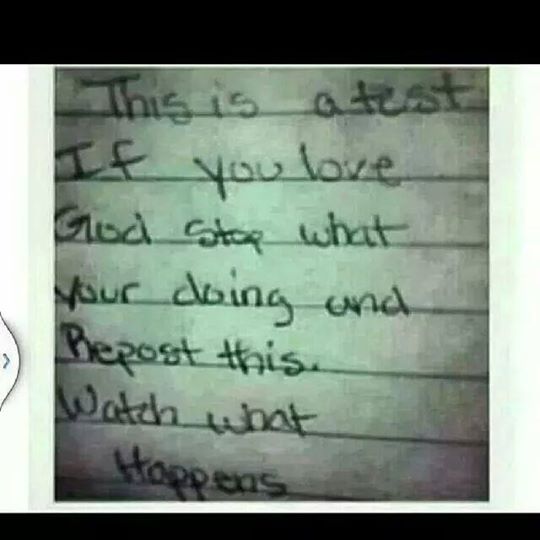 This is a test
If you love
God stop what
your doing and
Repost this.
Watch what
Happens